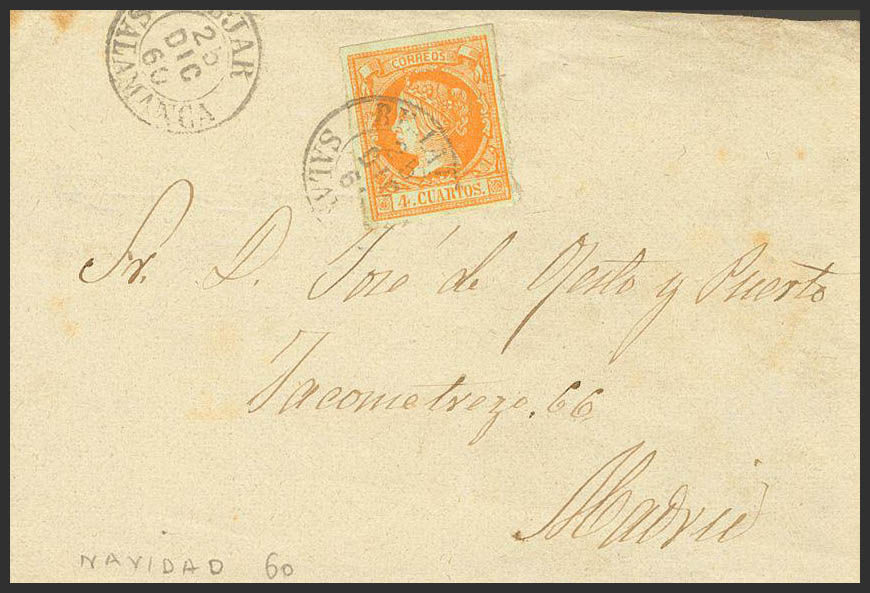 BEJAR
25
DIC
60
SALAMANCA
CORREOS
4. CUARTOS.
BEJAR
25
DIC
Sr. D. José de Gesto y Puerto
Jacometrezo. 66
Madrid
NAVIDAD 60